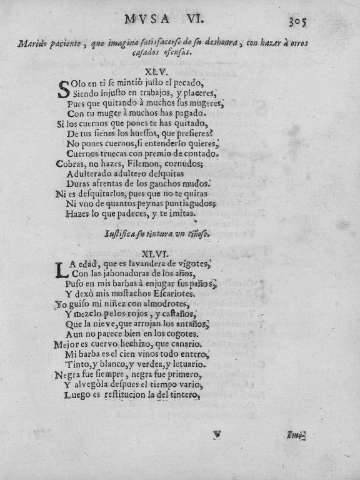 MVSA VI. 305
Marido paciente, que imagina satisfacerse de su deshonra, con hazer à otros
casados ofensas.
XLV.
SOlo en ti se mintiò justo el pecado,
Siendo injusto en trabajos, y placeres,
Pues que quitando à muchos sus mugeres,
Con tu muger à muchos has pagado.
Si los cuernos que pones te has quitado,
De tus sienes los huessos, que prefieres?
No pones cuernos, si entenderlo quieres,
Cuernos truecas con premio de contado.
Cobras, no hazes, Filemon, cornudos;
Adulterado adultero desquitas
Duras afrentas de los ganchos mudos.
Ni es desquitarlos, pues que no te quitas
Ni vno de quantos peynas puntiagudos;
Hazes lo que padeces, y te imitas.
Iustifica su tintura vn tiñoso.
XLVI.
LA edad, que es lavandera de vigotes,
Con las jabonaduras de los años,
Puso en mis barbas à enjugar sus paños,
Y dexò mis mostachos Escariotes.
Yo guiso mi niñez con almodrotes,
Y mezclo pelos rojos, y castaños,
Que la nieve, que arrojan los antaños,
Aun no parece bien en los cogotes.
Mejor es cuervo hechizo, que canario.
Mi barba es el cien vinos todo entero,
Tinto, y blanco, y verdea, y letuario.
Negra fue siempre, negra fue primero,
Y alvegòla despues el tiempo vario,
Luego es restitucion la del tintero,
V